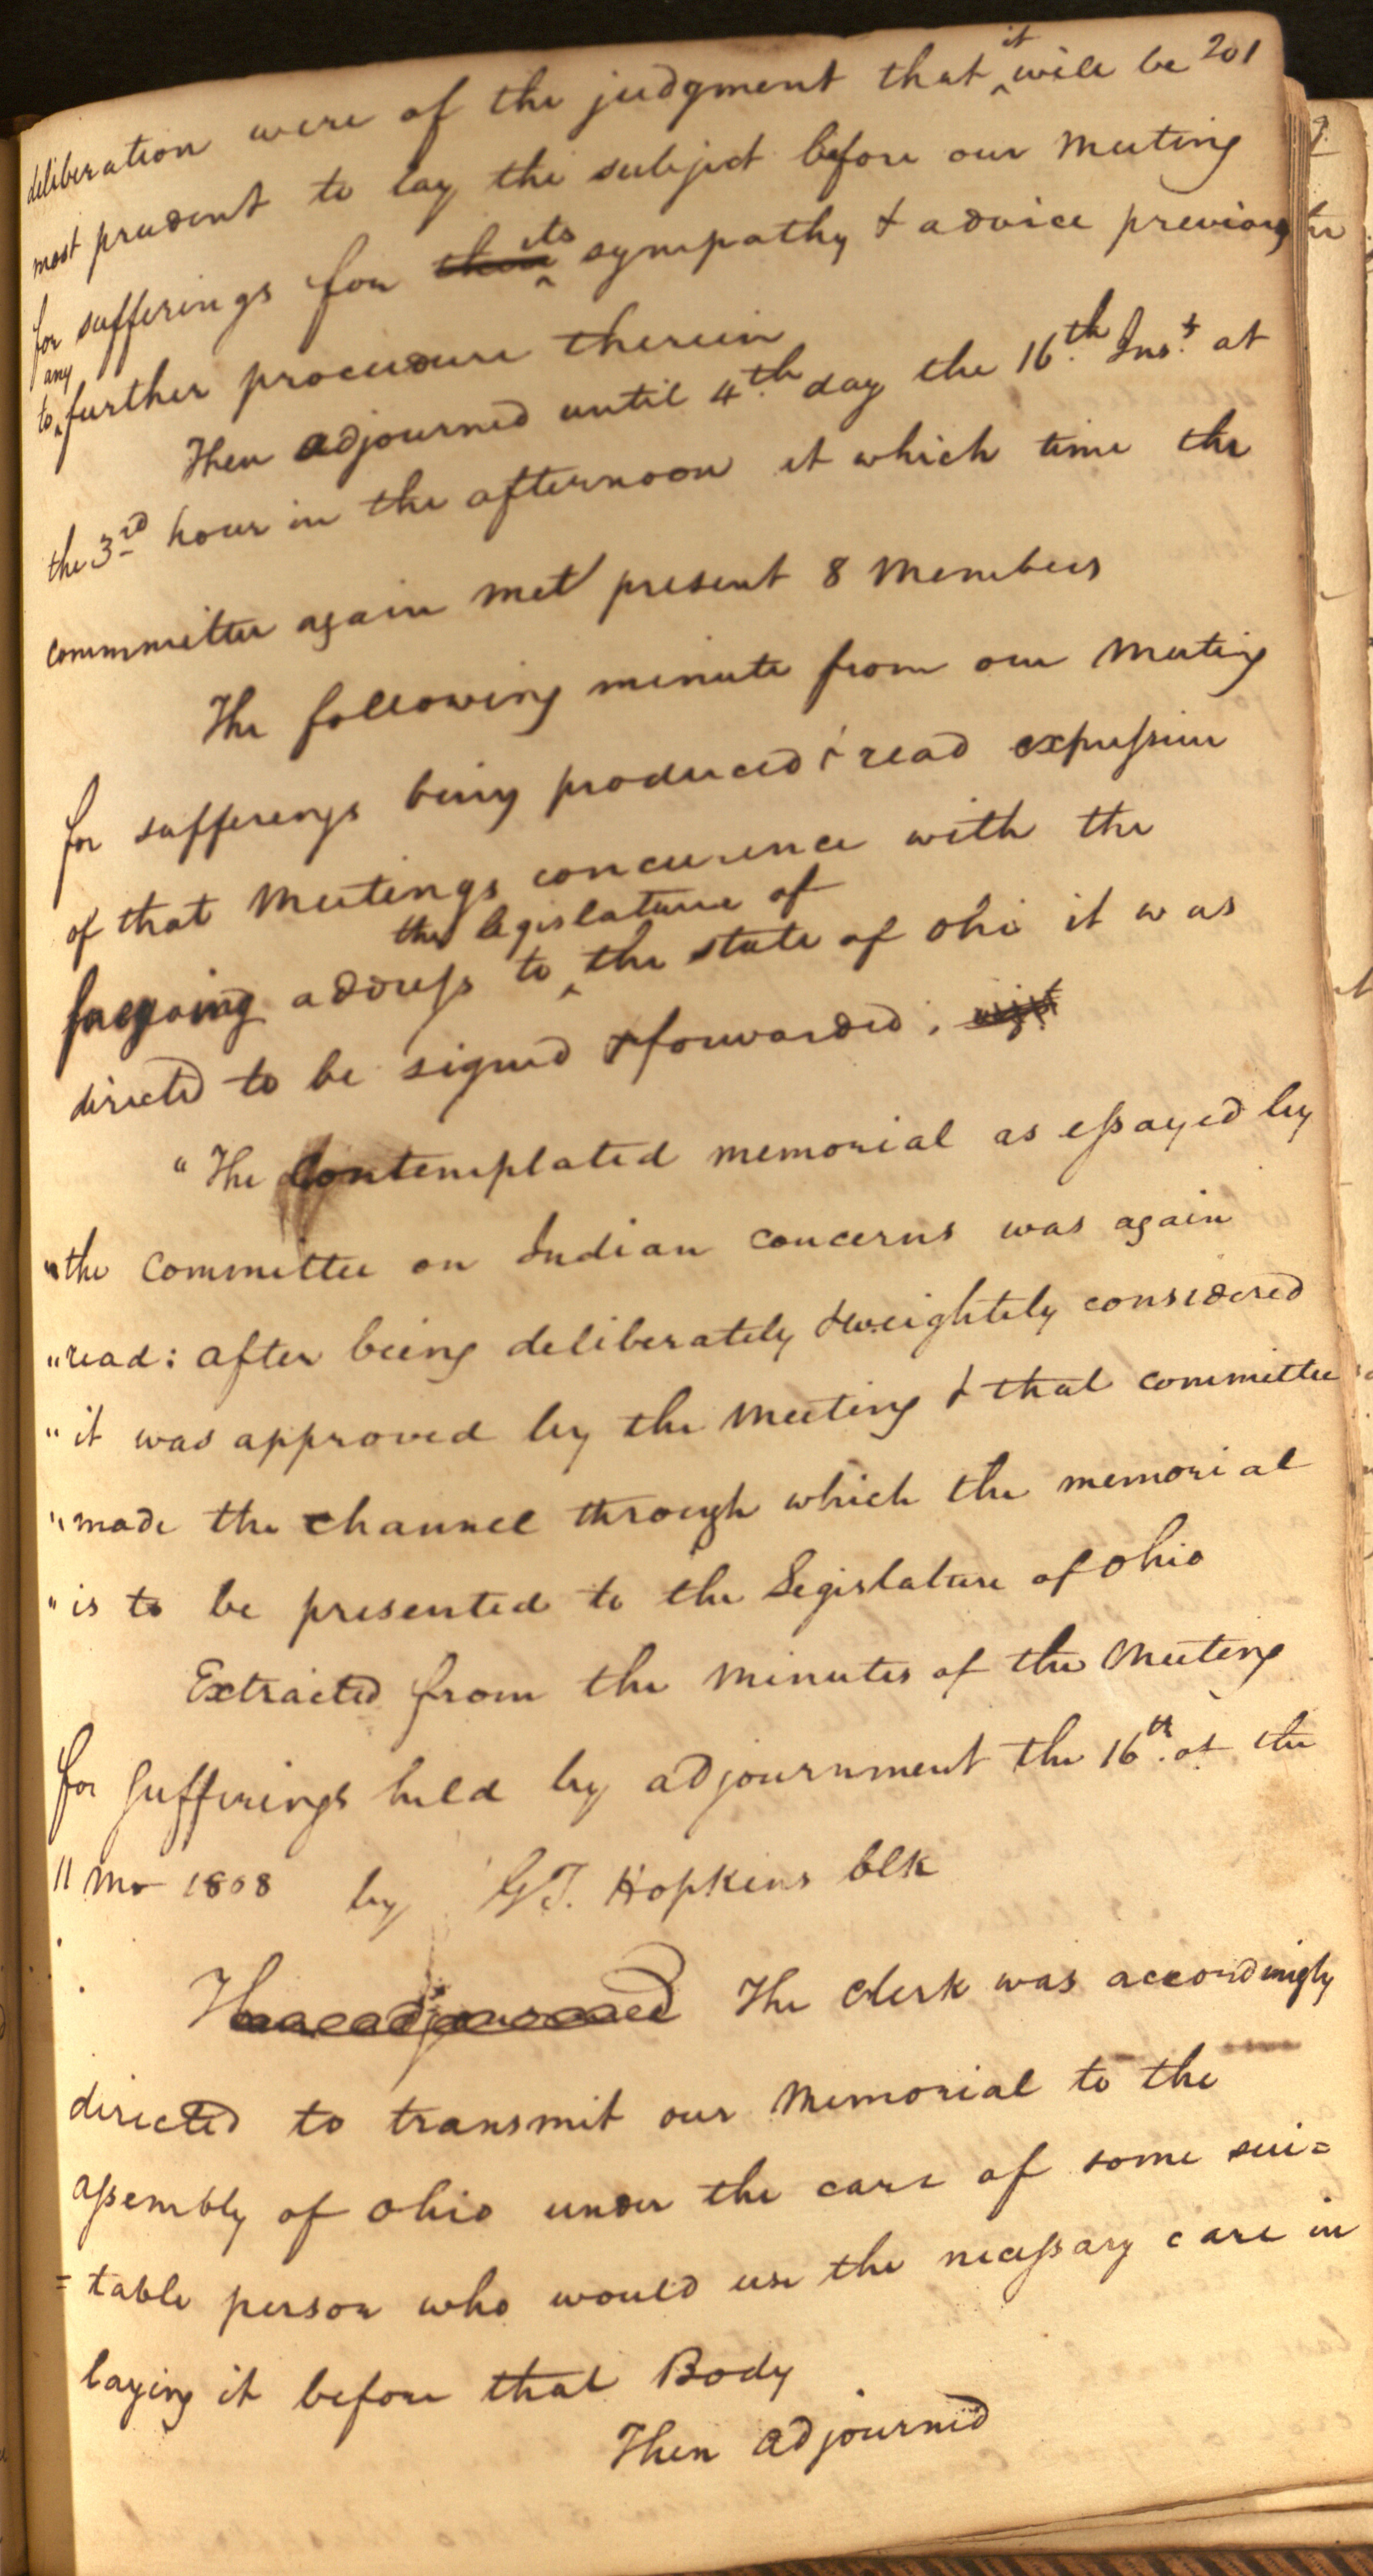 201
deliberation were of the judgment that ^it will be
most prudent to lay the subject before our Meeting
for sufferings for ~~their~~ ^its sympathy & advice previous
to ^any further procedure therein
Then adjourned until 4th. day the 16th. Inst. at
the 3rd hour in the afternoon at which time the
committee again met present 8 Members
The following minute from our Meeting
for sufferings being produced & read expressive
of that Meetings concurence with the
foregoing address to ^the legislature of the state of Ohi it was
directed to be signed & forwarded.
"The Contemplated memorial as essayed by
"the Committee on Indian Concerns was again
"read: after being deliberately & weightely considered
"it was approved by the Meeting & that committee
"made the channel through which the memorial
"is to be presented to the Legislature of Ohio
Extracted from the Minutes of the Meeting
for Sufferings held by adjournment the 16th. of the
11 Mo 1808 by GT. Hopkins Clk
~~Then adjourned~~ The Clerk was accordingly
directed to transmit our Memorial to the
assembly of Ohio under the care of some sui=
=table person who would use the necessary care in
laying it before that Body
Then adjourned